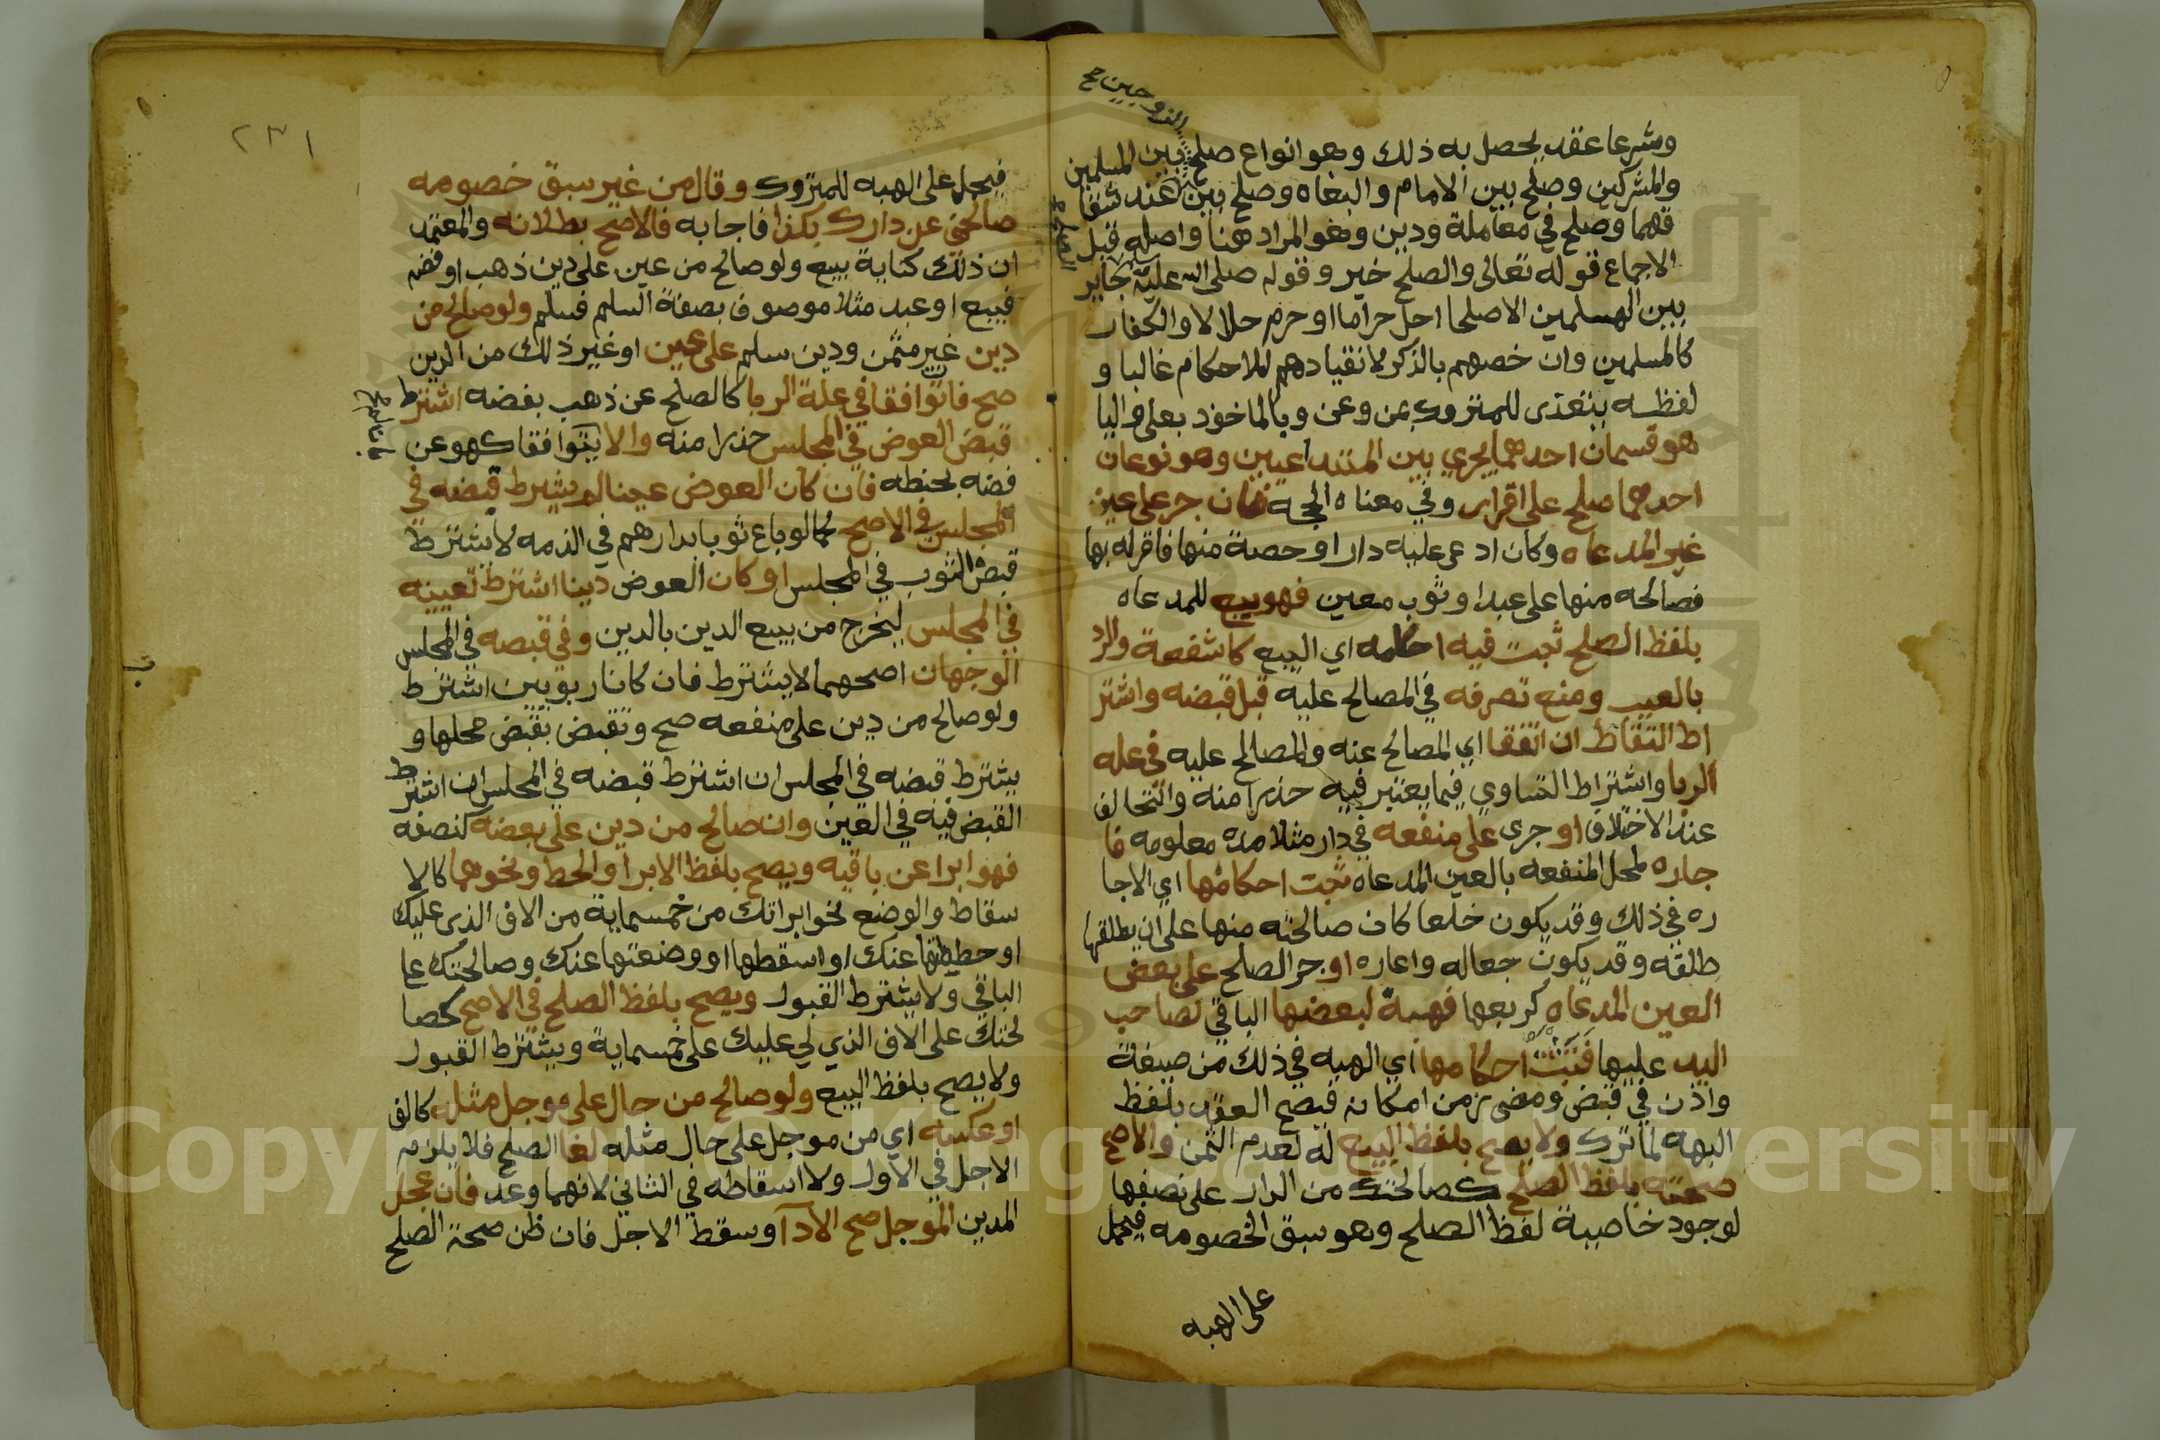 الزوجين صح
وشرعا عقد يحصل به ذلك وهو انواع صلح بين المسلمين
والمشركين وصلح بين الامام والبغاه وصلح بين عند شقا
قهما وصلح في معاملة ودين وهو المراد هنا واصله قبل
الاجماع قوله تعالى والصلح خير وقوله صلى الله عليه جايز
بين المسلمين الا صلحا احل حراما او حرم حلالا والكفار
كالمسلمين وان خصهم بالذكر لانقيادهم للاحكام غالبا و
لفظه يتعدى للمتروك بمن وعن وبالماخوذ بعلى والبا
هو قسمان احدهما يجري بين المتداعيين وهو نوعان
احدهما صلح على اقرار وفي معناه الحجة فان جر على عين
غير المدعاه وكان ادعى عليه دار او حصة منها فاقر له بها
فصالحه منها على عبد او ثوب معين فهو بيع للمدعاه
بلفظ الصلح ثبت فيه احكامه اي البيع كاشفعة والرد
بالعيب ومنع تصرفه في المصالح عليه قبل قبضه واشتر
اط التقابط ان اتفقا اي المصالح عنه والمصالح عليه في عله
الربا واشتراط التساوي فيما يعتبر فيه حذرا منه والتحالف
عند الاختلاف او جرى على منفعه في دار مثلا مدة معلومه فا
جاره لمحل المنفعه بالعين المدعاه ثبت احكامها اي الاجا
ره في ذلك وقد يكون خلعا كان صالحته منها على ان يطلقها
طلقه وقد يكون جعاله واعاره او جر الصلح على بعض
العين المدعاه كربعها فهبة لبعضها الباقي لصاحب
اليد عليها فثبت احكامها اي الهبه في ذلك من صيغة
واذن في قبض ومضى زمن امكانه فيصح العقد بلفظ
الهبه لما ترك ولا يصح بلفظ البيع له لعدم الثمن والاصح
صحته بلفظ الصلح كصالحتك من الدار على نصفها
لوجود خاصية لفظ الصلح وهو سبق الخصومه فيحمل
على الهبه
٢٣١
فيحمل على الهبه للمتروك وقال من غير سبق خصومه
صالحني عن دارك بكذا فاجابه فالاصح بطلانه والمعتمد
ان ذلك كناية بيع ولو صالح من عين على دين ذهب او فضه
فبيع او عبد مثلا موصوف بصفة السلم فسلم ولو صالح من
دين غير مثمن ودين سلم على عين او غير ذلك من الدين
صح فان توافقا في علة الربا كالصلح عن ذهب بفضه اشترط
قبض العوض في المجلس حذرا منه والا يتوافقا كهو عن
فضه بحنطه فان كان العوض عينا لم يشترط قبضه في
المجلس في الاصح كما لو باع ثوبا بدراهم في الذمه لا يشترط
قبض الثوب في المجلس او كان العوض دينا اشترط تعيينه
في المجلس ليخرج من بيع الدين بالدين وفي قبضه في المجلس
الوجهان اصحهما لا يشترط فان كانا ربويين اشترط
ولو صالح من دين على منفعه صح وتقبض بقبض محلها و
يشترط قبضه في المجلس ان اشترط قبضه في المجلس ان اشترط
القبض فيه في العين وان صالح من دين على بعضه كنصفه
فهو ابرا عن باقيه ويصح بلفظ الابرا والحط ونحوهما كالا
سقاط والوضع نحو ابراتك من خمسماية من الالف الذي عليك
او حططتها عنك او اسقطها او وضعتها عنك وصالحتك على
الباقي ولا يشترط القبول ويصح بلفظ الصلح في الاصح كصا
لحتك على الالف الذي لي عليك على خمسماية ويشترط القبول
ولا يصح بلفظ البيع ولو صالح من حال على موجل مثله كالف
او عكسه اي من موجل على حال مثله لغا الصلح فلا يلزم
الاجل في الاول ولا اسقاطه في الثاني لانهما وعد فان عجل
المدين الموجل صح الادا وسقط الاجل فان ظن صحة الصلح